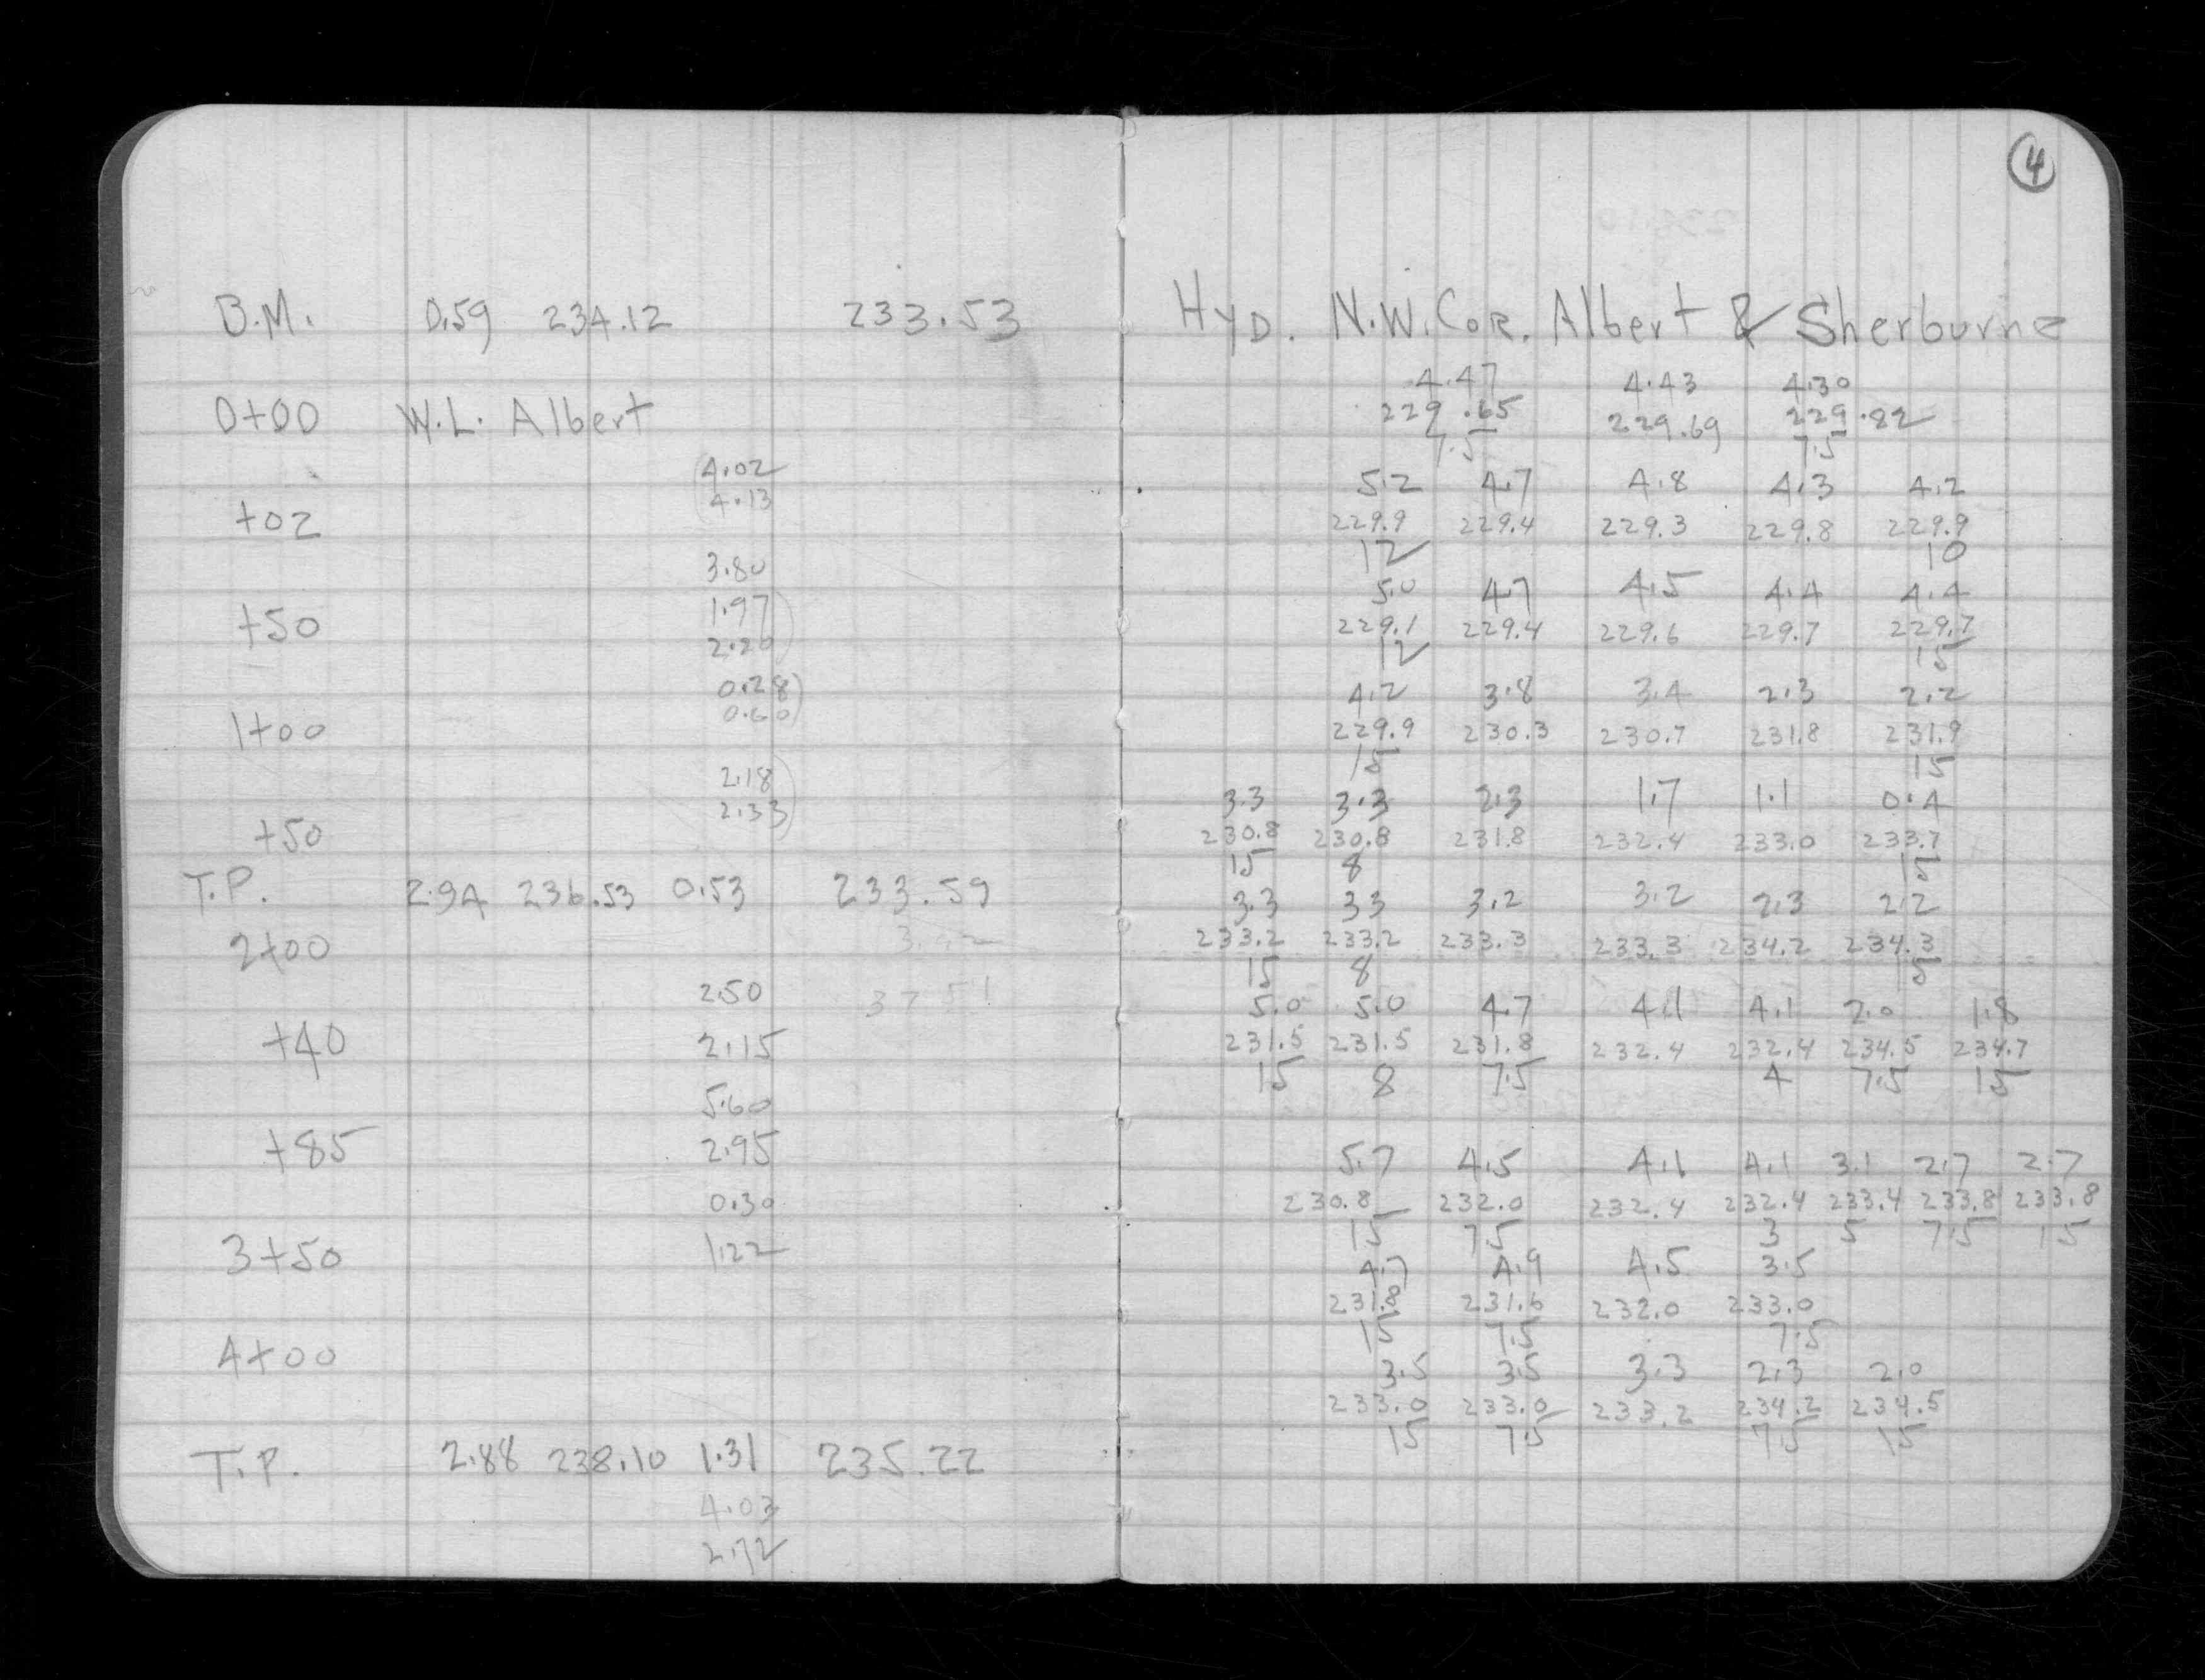 4
B.M. 0.59 234.12 233.53 HYD. N.W. COR. Albert & Sherburne
4.47 4.43 4.30
0+00 W.L. Albert 229.65 229.69 229.82
7.5 7.5
4.02 5.2 4.7 4.8 4.3 4.2
4.13
+02 229.9 229.4 229.3 229.8 229.9
12 10
3.80 5.0 4.7 4.5 4.4 4.4
1.97
+50 229.1 229.4 229.6 229.7 229.7
2.20 12 15
0.28 4.2 3.8 3.4 2.3 2.2
0.60
1+00 229.9 230.3 230.7 231.8 231.9
15 15
2.18
2.33 3.3 3.3 2.3 1.7 1.1 0.4
+50 230.8 230.8 231.8 232.4 233.0 233.7
15 8 15
T.P. 2.94 236.53 0.53 233.59
3.3 3.3 3.2 3.2 2.3 2.2
2+00 233.2 233.2 233.3 233.3 234.2 234.3
15 8 15
2.50 37 51 5.0 5.0 4.7 4.1 4.1 2.0 1.8
+40 2.15 231.5 231.5 231.8 232.4 232.4 234.5 234.7
15 8 7.5 4 7.5 15
5.60
+85 2.95 5.7 4.5 4.1 4.1 3.1 2.7 2.7
0.30 230.8 232.0 232.4 232.4 233.4 233.8 233.8
15 7.5 3 5 7.5 15
3+50 1.22 4.7 4.9 4.5 3.5
231.8 231.6 232.0 233.0
15 7.5 7.5
4+00 3.5 3.5 3.3 2.3 2.0
233.0 233.0 233.2 234.2 234.5
15 7.5 7.5 15
T.P. 2.88 238.10 1.31 235.22
4.03
2.72